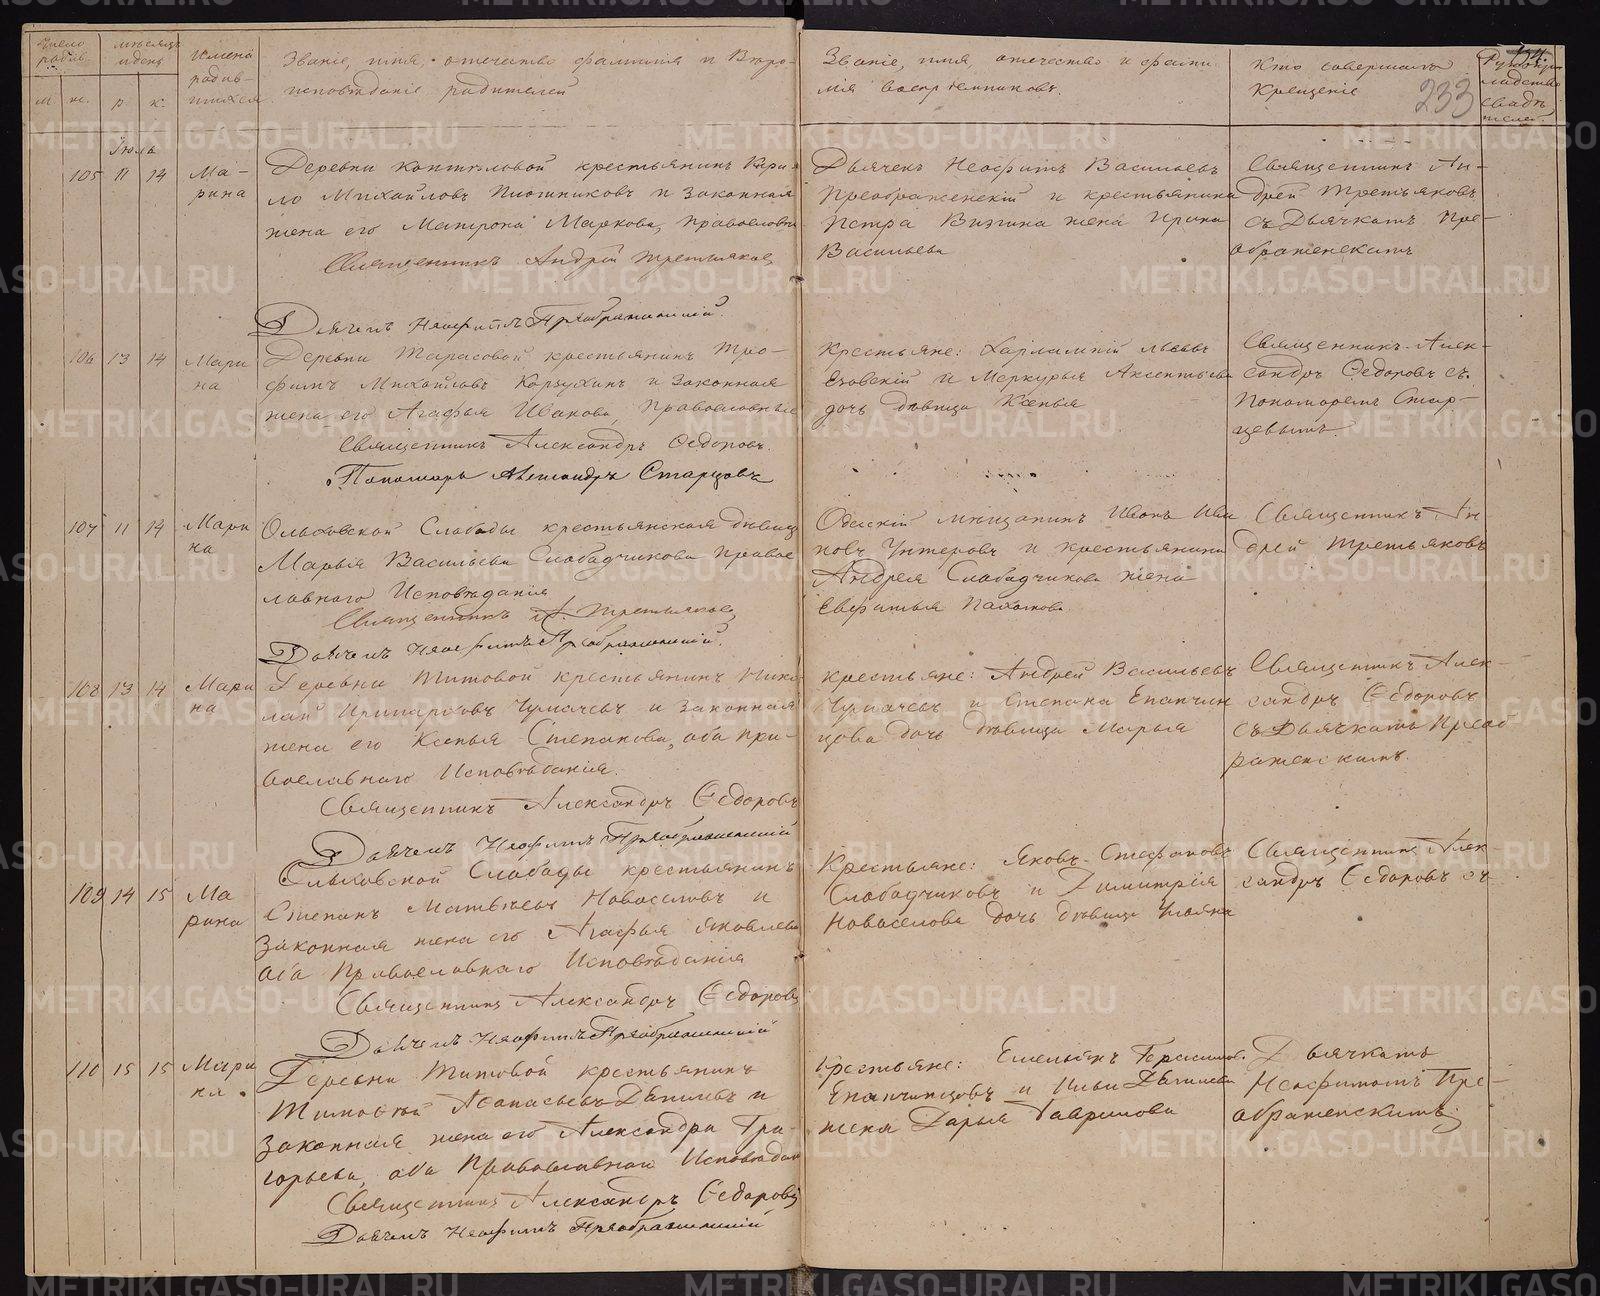 Число родив.
мѣсяцъ и день
Имена родив-шихся
м. ж. р. к.
Званіе, имя, отечество фамилія и Вѣро-
исповѣданіе родителей
Званіе, имя, отечество и фами-
лія воспріемниковъ.
Кто совершалъ
Крещеніе
233
Рукопри-
кладство
свидѣ-
телей
Іюль
105 11 14 Ма-
рина
Деревни Коптиловой крестьянинъ Кири-
ло Михайловъ Плотниковъ и Законная
жена его Матрона Маркова, православн
Священникъ Андрей Третьяковъ
Дьячекъ Неофитъ Преображенскій.
Дьячекъ Неофитъ Васильевъ
Преображенскій и крестьянина
Петра Визгина жена Ирина
Васильева
Священникъ Ан-
дрей Третьяковъ
съ Дьячкомъ Пре-
ображенскимъ
106 13 14 Мари
на
Деревни Тарасовой крестьянинъ Тро-
фимъ Михайловъ Корзухинъ и Законная
жена его Агафья Ивакова, Православные
Священникъ Александръ Ѳедоровъ.
Пономарь Александръ Старцовъ
Крестьяне: Харлампій Львовъ
Езовскій и Меркурья Аксентьева
дочь дѣвица Ксенья
Священникъ Алек-
сандръ Ѳедоровъ съ
Пономаремъ Стар-
цевымъ.
107 11 14 Мари
на
Ольховской Слободы крестьянская дѣвица
Марья Васильева Слободчикова Правос
лавного Исповѣданія
Священникъ А. Третьяковъ
Дьячекъ Неофитъ Преображенскій.
Одескій мѣщанинъ Иванъ Ива
новъ Унтеровъ и крестьянина
Андрея Слободчикова жена
Евфимья Пахомова.
Священникъ Ан
дрей Третьяковъ
108 13 14 Мари
на
Деревни Титовой крестьянинъ Нико
лай Иринарховъ Чумачевъ и Законная
жена его Ксенья Степанова, оба Пра-
вославнаго Исповѣданія.
Священникъ Александръ Ѳедоровъ
Дьячекъ Неофитъ Преображенскій
крестьяне: Андрей Васильевъ
Чумачевъ и Степана Епанчин
цова дочь дѣвица Марья
Священникъ Алек-
сандръ Ѳедоровъ
съ Дьячкомъ Преоб
раженскимъ.
109 14 15 Ма
рина
Ольховской Слободы крестьянинъ
Степанъ Матвѣевъ Новоселовъ и
Законная жена его Агафья Яковлева
оба Православнаго Исповѣданія
Священникъ Александръ Ѳедоровъ
Дьячекъ Неофитъ Преображенскій
Крестьяне: Яковъ Стефановъ
Слободчиковъ и Димитрія
Новоселова дочь дѣвица Ульяна
Священникъ Алек-
сандръ Ѳедоровъ съ
110 15 15 Мари
на.
Деревни Титовой крестьянинъ
Тимоѳей Аѳанасьевъ Даниловъ и
Законная жена его Александра Гри-
горьева, оба Православнаго Исповѣдан
Священникъ Александръ Ѳедоровъ
Дьячекъ Неофитъ Преображенскій
Крестьяне: Емельянъ Герасимовъ
Епанчинцовъ и Ильи Данилова
жена Дарья Гаврилова
Дьячкомъ
Неофитомъ Пре-
ображенскимъ.
METRIKI.GASO-URAL.RU